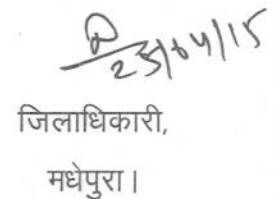 25/04/15
जिलाधिकारी,
मधेपुरा।